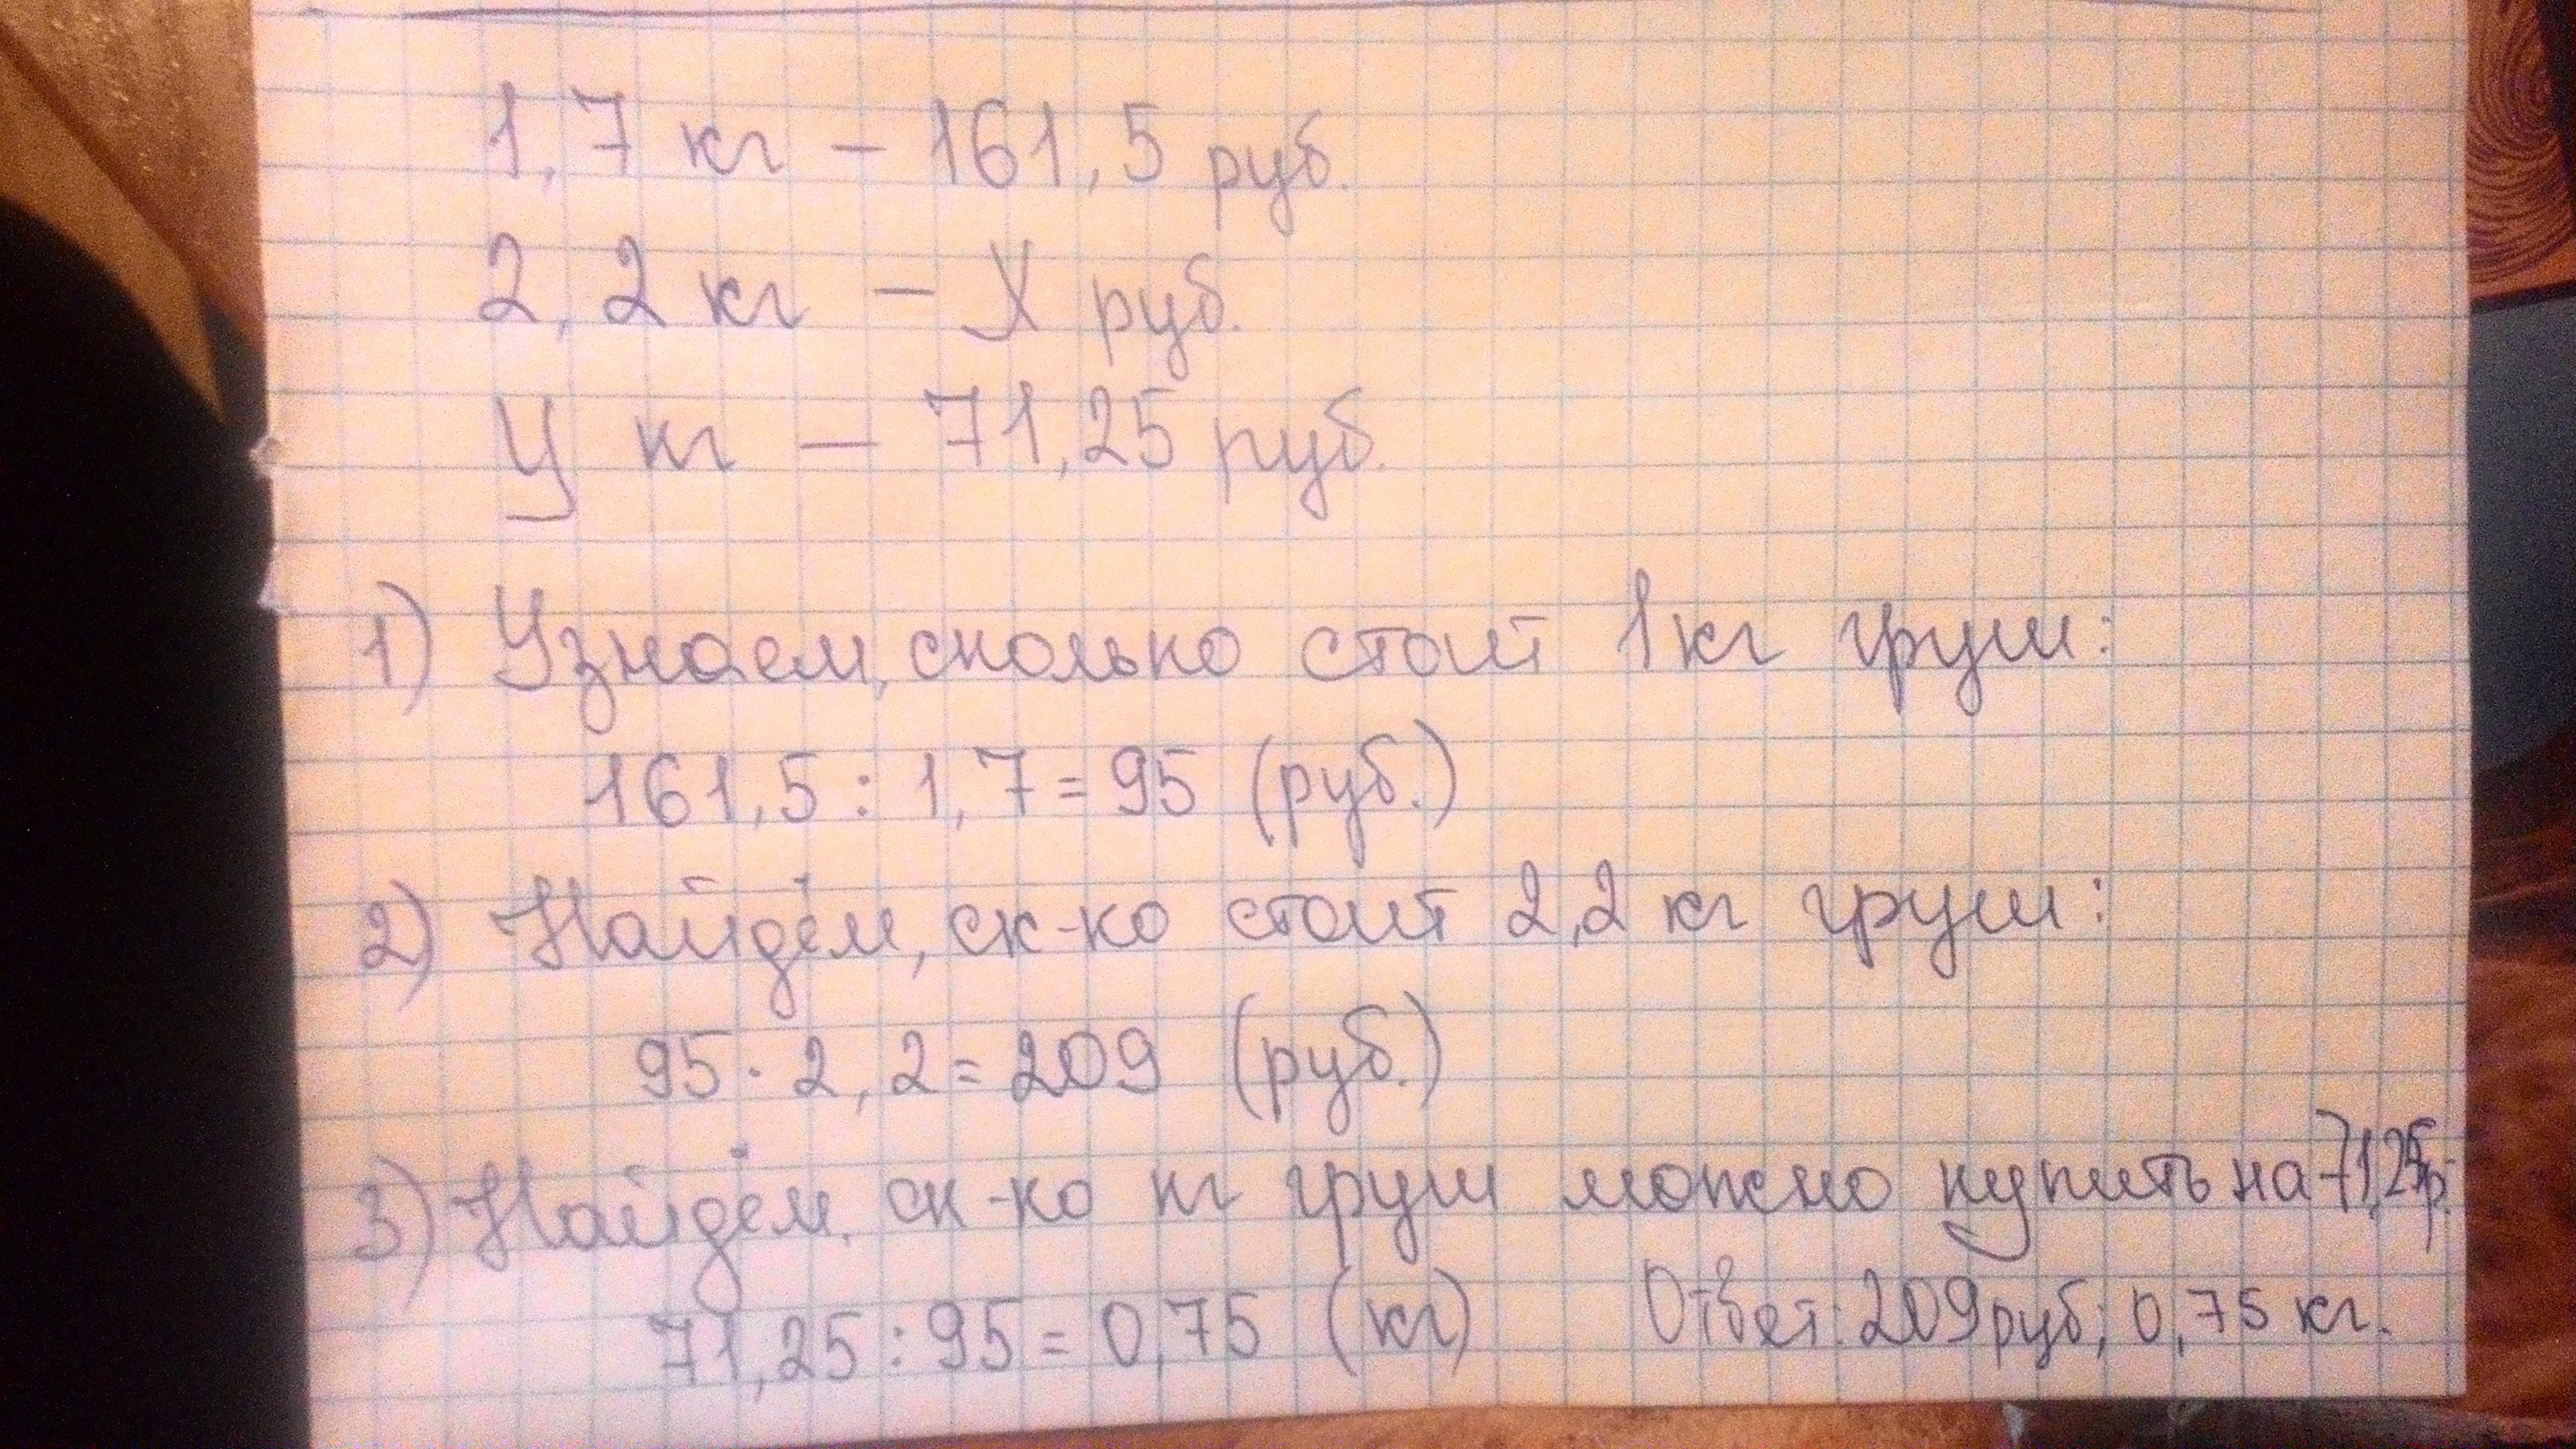 1,7 кг – 161,5 руб.
2,2 кг – X руб.
У кг – 71,25 руб.
1) Узнаем, сколько стоит 1 кг груш:
161,5 : 1,7 = 95 (руб.)
2) Найдём, ск-ко стоит 2,2 кг груш:
95 · 2,2 = 209 (руб.)
3) Найдём, ск-ко кг груш можно купить на 71,25р.
71,25 : 95 = 0,75 (кг) Ответ: 209 руб; 0,75 кг.